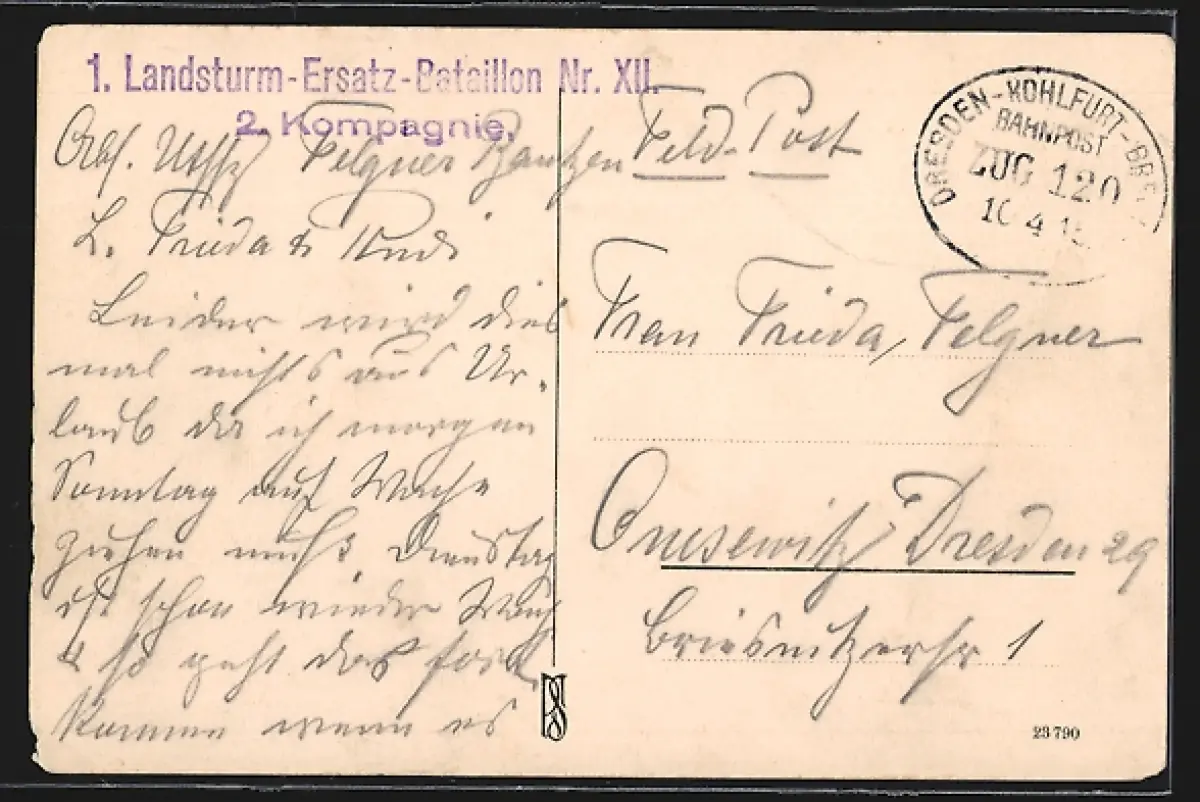 1. Landsturm-Ersatz-Bataillon Nr. XII.
2. Kompagnie.
Abs. Utffz Felgner Bautzen
L. Frieda & Rudi
Leider wird dies
mal nichts aus Ur-
laub da ich morgen
Sonntag auf Wache
ziehen muß. Dienstag
ist schon wieder Wach
& so geht das fort.
Kommen wenn es
Feld-Post
DRESDEN-KOHLFURT-BRE
BAHNPOST
ZUG 120
10 4 15
Frau Frieda Felgner
Omsewitz Dresden 29
Briesnitzerstr 1
23790